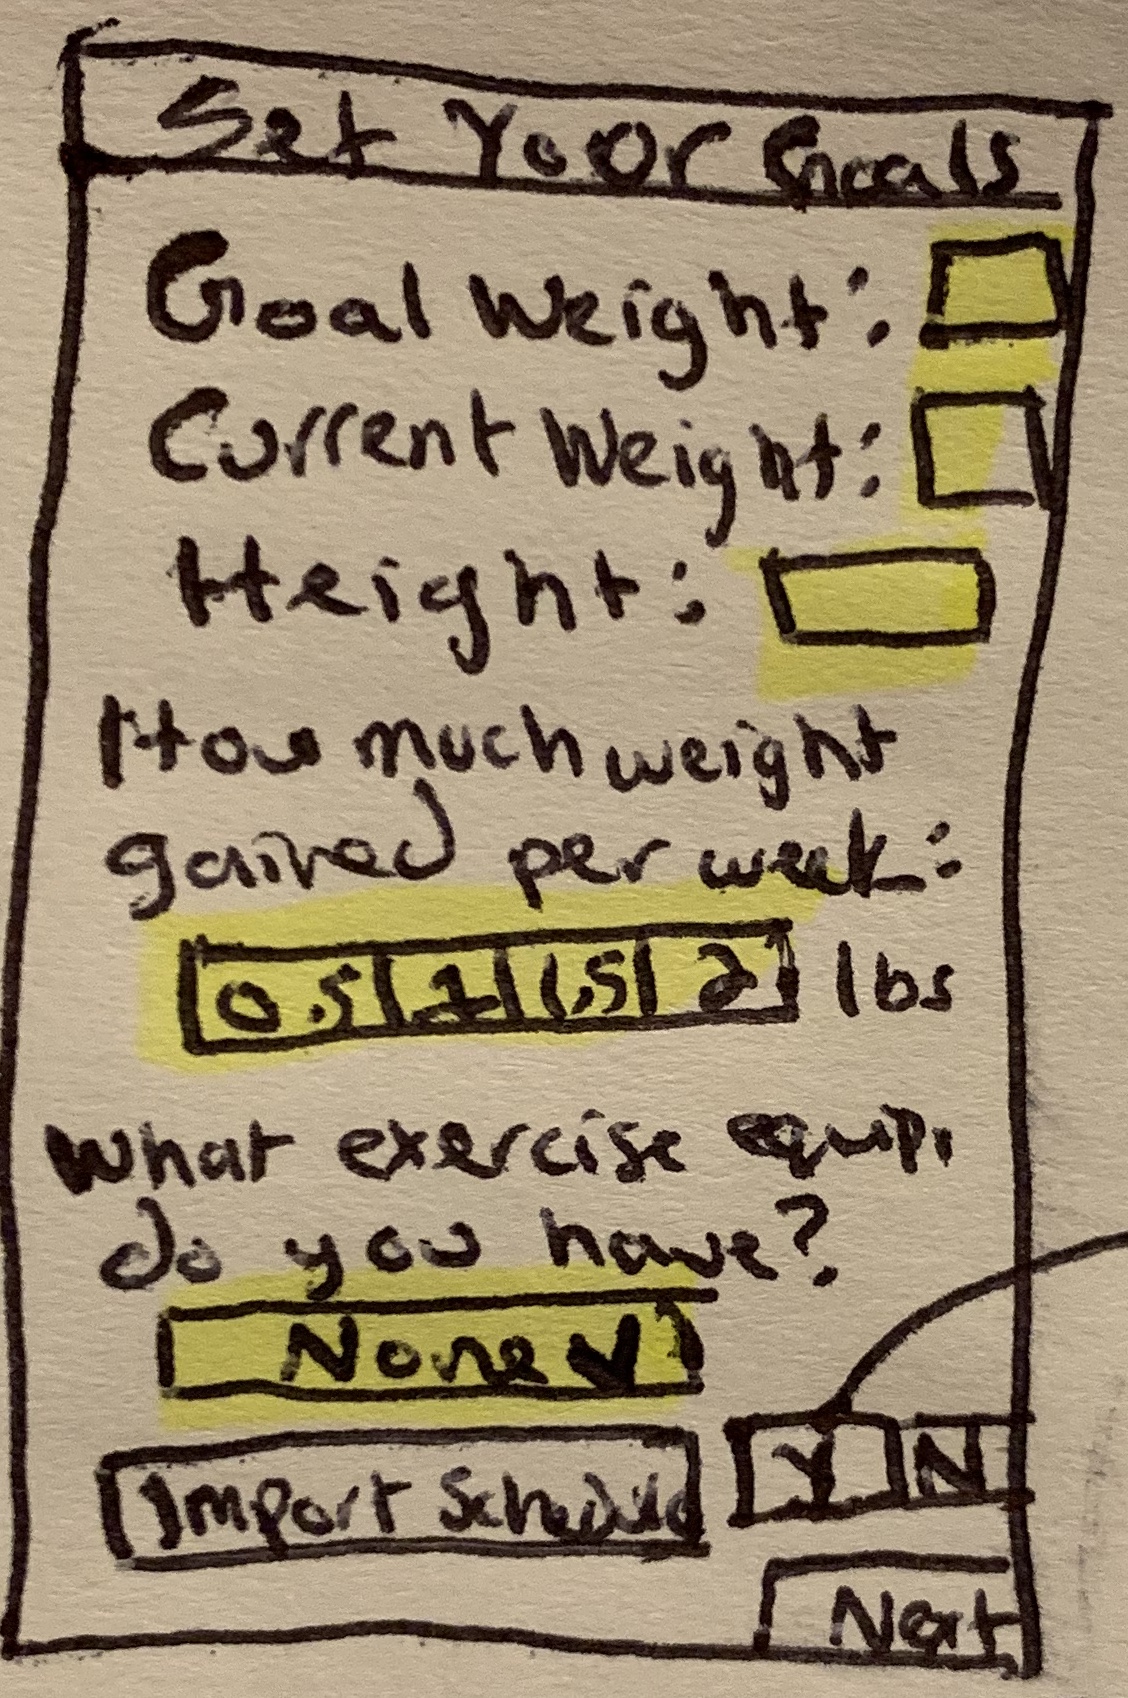 Set Your Goals
Goal Weight:
Current Weight:
Height:
How much weight
gained per week:
0.5 1 1.5 2 lbs
What exercise equip.
do you have?
None
Import Schedule Y N
Next